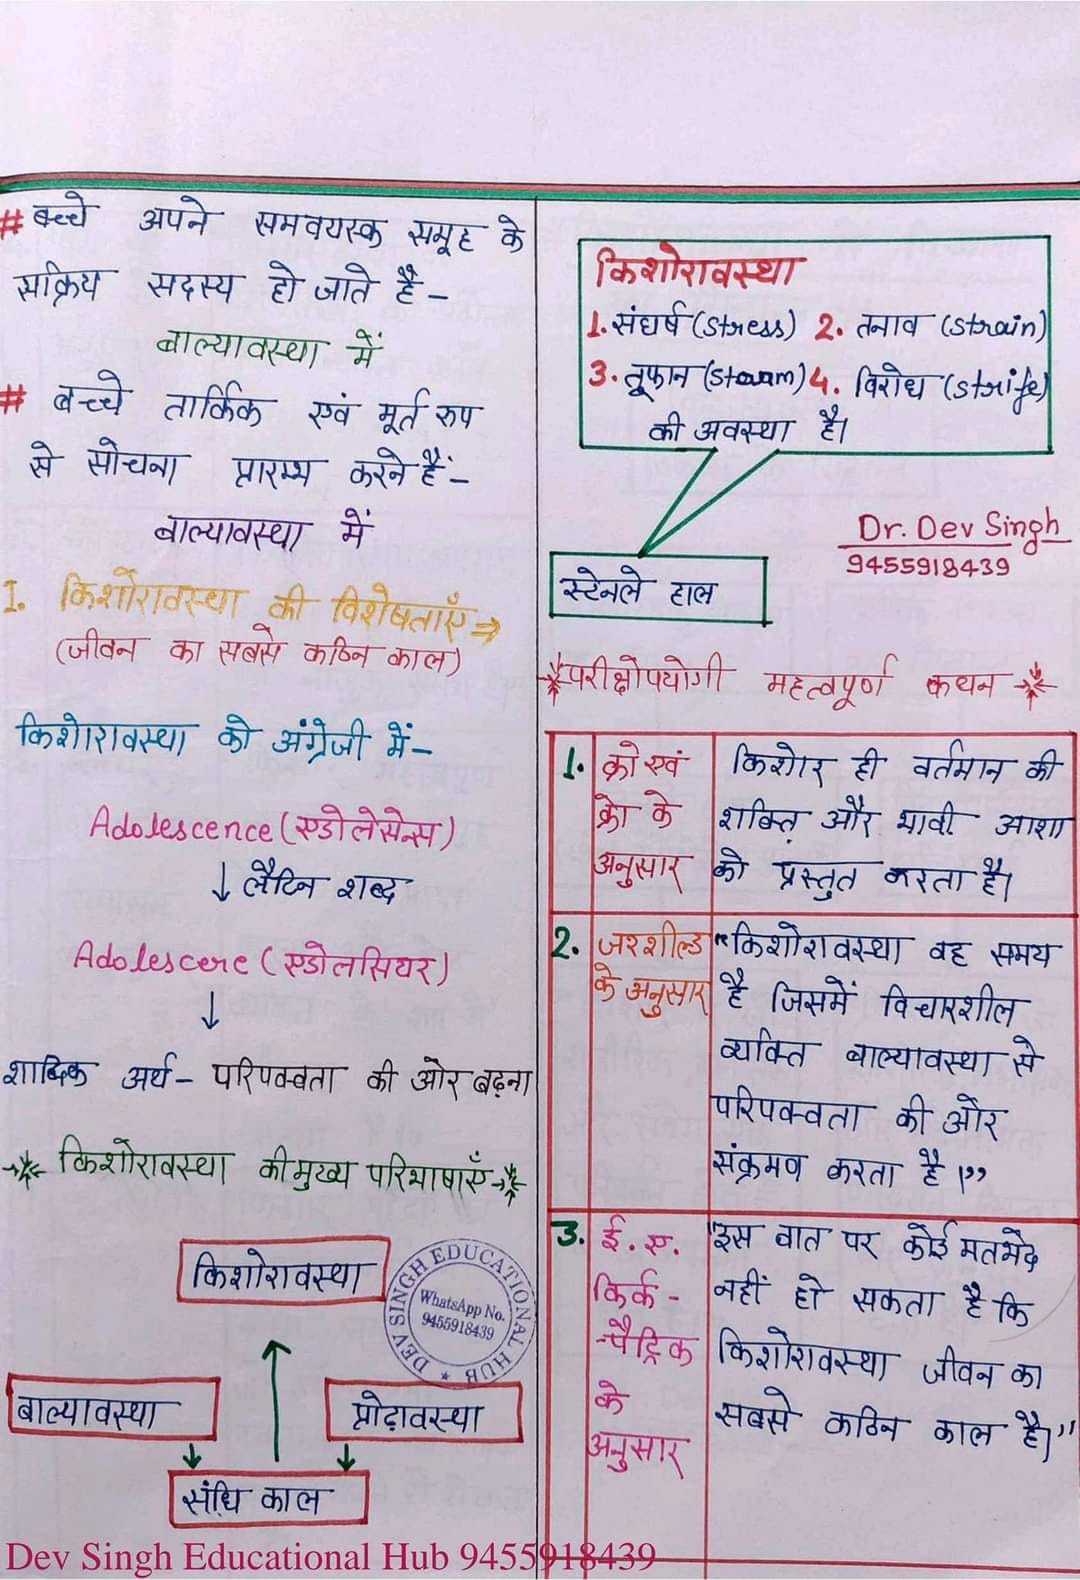 # बच्चे अपने समवयस्क समूह के
सक्रिय सदस्य हो जाते है -
बाल्यावस्था में
# बच्चे तार्किक एवं मूर्त रूप
से सोचना प्रारम्भ करने हैं -
बाल्यावस्था में
I. किशोरावस्था की विशेषताएँ ⇒
(जीवन का सबसे कठिन काल)
किशोरावस्था को अंग्रेजी में -
Adolescence (एडोलेसेन्स)
↓ लैटिन शब्द
Adolescere (एडोलसियर)
↓
शाब्दिक अर्थ - परिपक्वता की ओर बढ़ना
किशोरावस्था की मुख्य परिभाषाएँ
किशोरावस्था
बाल्यावस्था
प्रोढ़ावस्था
संधि काल
DEV SINGH EDUCATIONAL HUB
WhatsApp No.
9455918439
किशोरावस्था
1. संघर्ष (stress) 2. तनाव (strain)
3. तूफान (stavam) 4. विरोध (strife)
की अवस्था है।
स्टेनले हाल
Dr. Dev Singh
9455918439
परीक्षोपयोगी महत्वपूर्ण कथन
1. क्रो एवं
क्रो के
अनुसार
किशोर ही वर्तमान की
शक्ति और भावी आशा
को प्रस्तुत करता है।
2. जरशील्ड
के अनुसार
"किशोरावस्था वह समय
है जिसमें विचारशील
व्यक्ति बाल्यावस्था से
परिपक्वता की ओर
संक्रमव करता है।"
3. ई. ए.
किर्क -
पैट्रिक
के
अनुसार
"इस वात पर कोई मतभेद
नहीं हो सकता है कि
किशोरावस्था जीवन का
सबसे कठिन काल है।"
Dev Singh Educational Hub 9455918439